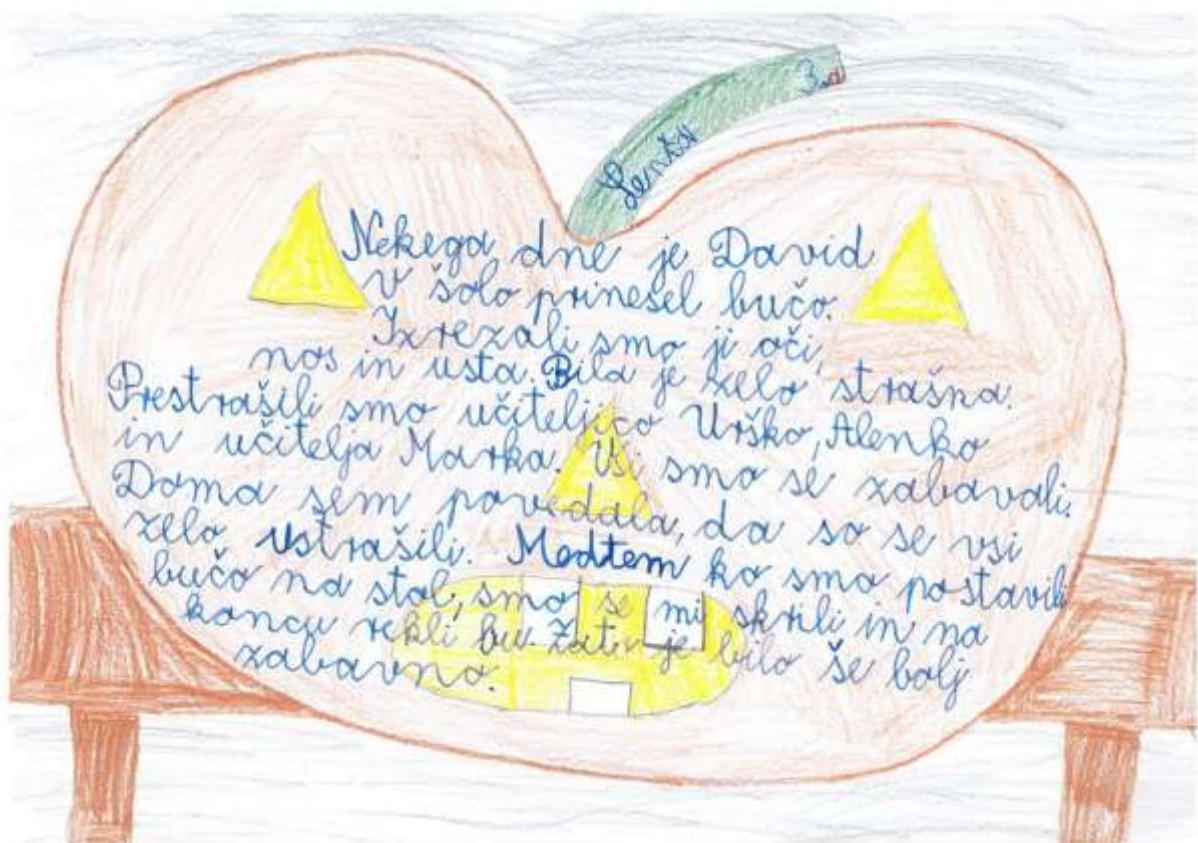 3.a
Nekega dne je David
v šolo prinesel bučo.
Izrezali smo ji oči,
nos in usta. Bila je zelo strašna.
Prestrašili smo učiteljico Urško, Alenko
in učitelja Marka. Vsi smo se zabavali.
Doma sem povedala, da so se vsi
zelo ustrašili. Medtem ko smo postavili
bučo na stol, smo se mi skrili in na
koncu rekli bu. Zato je bilo še bolj
zabavno.